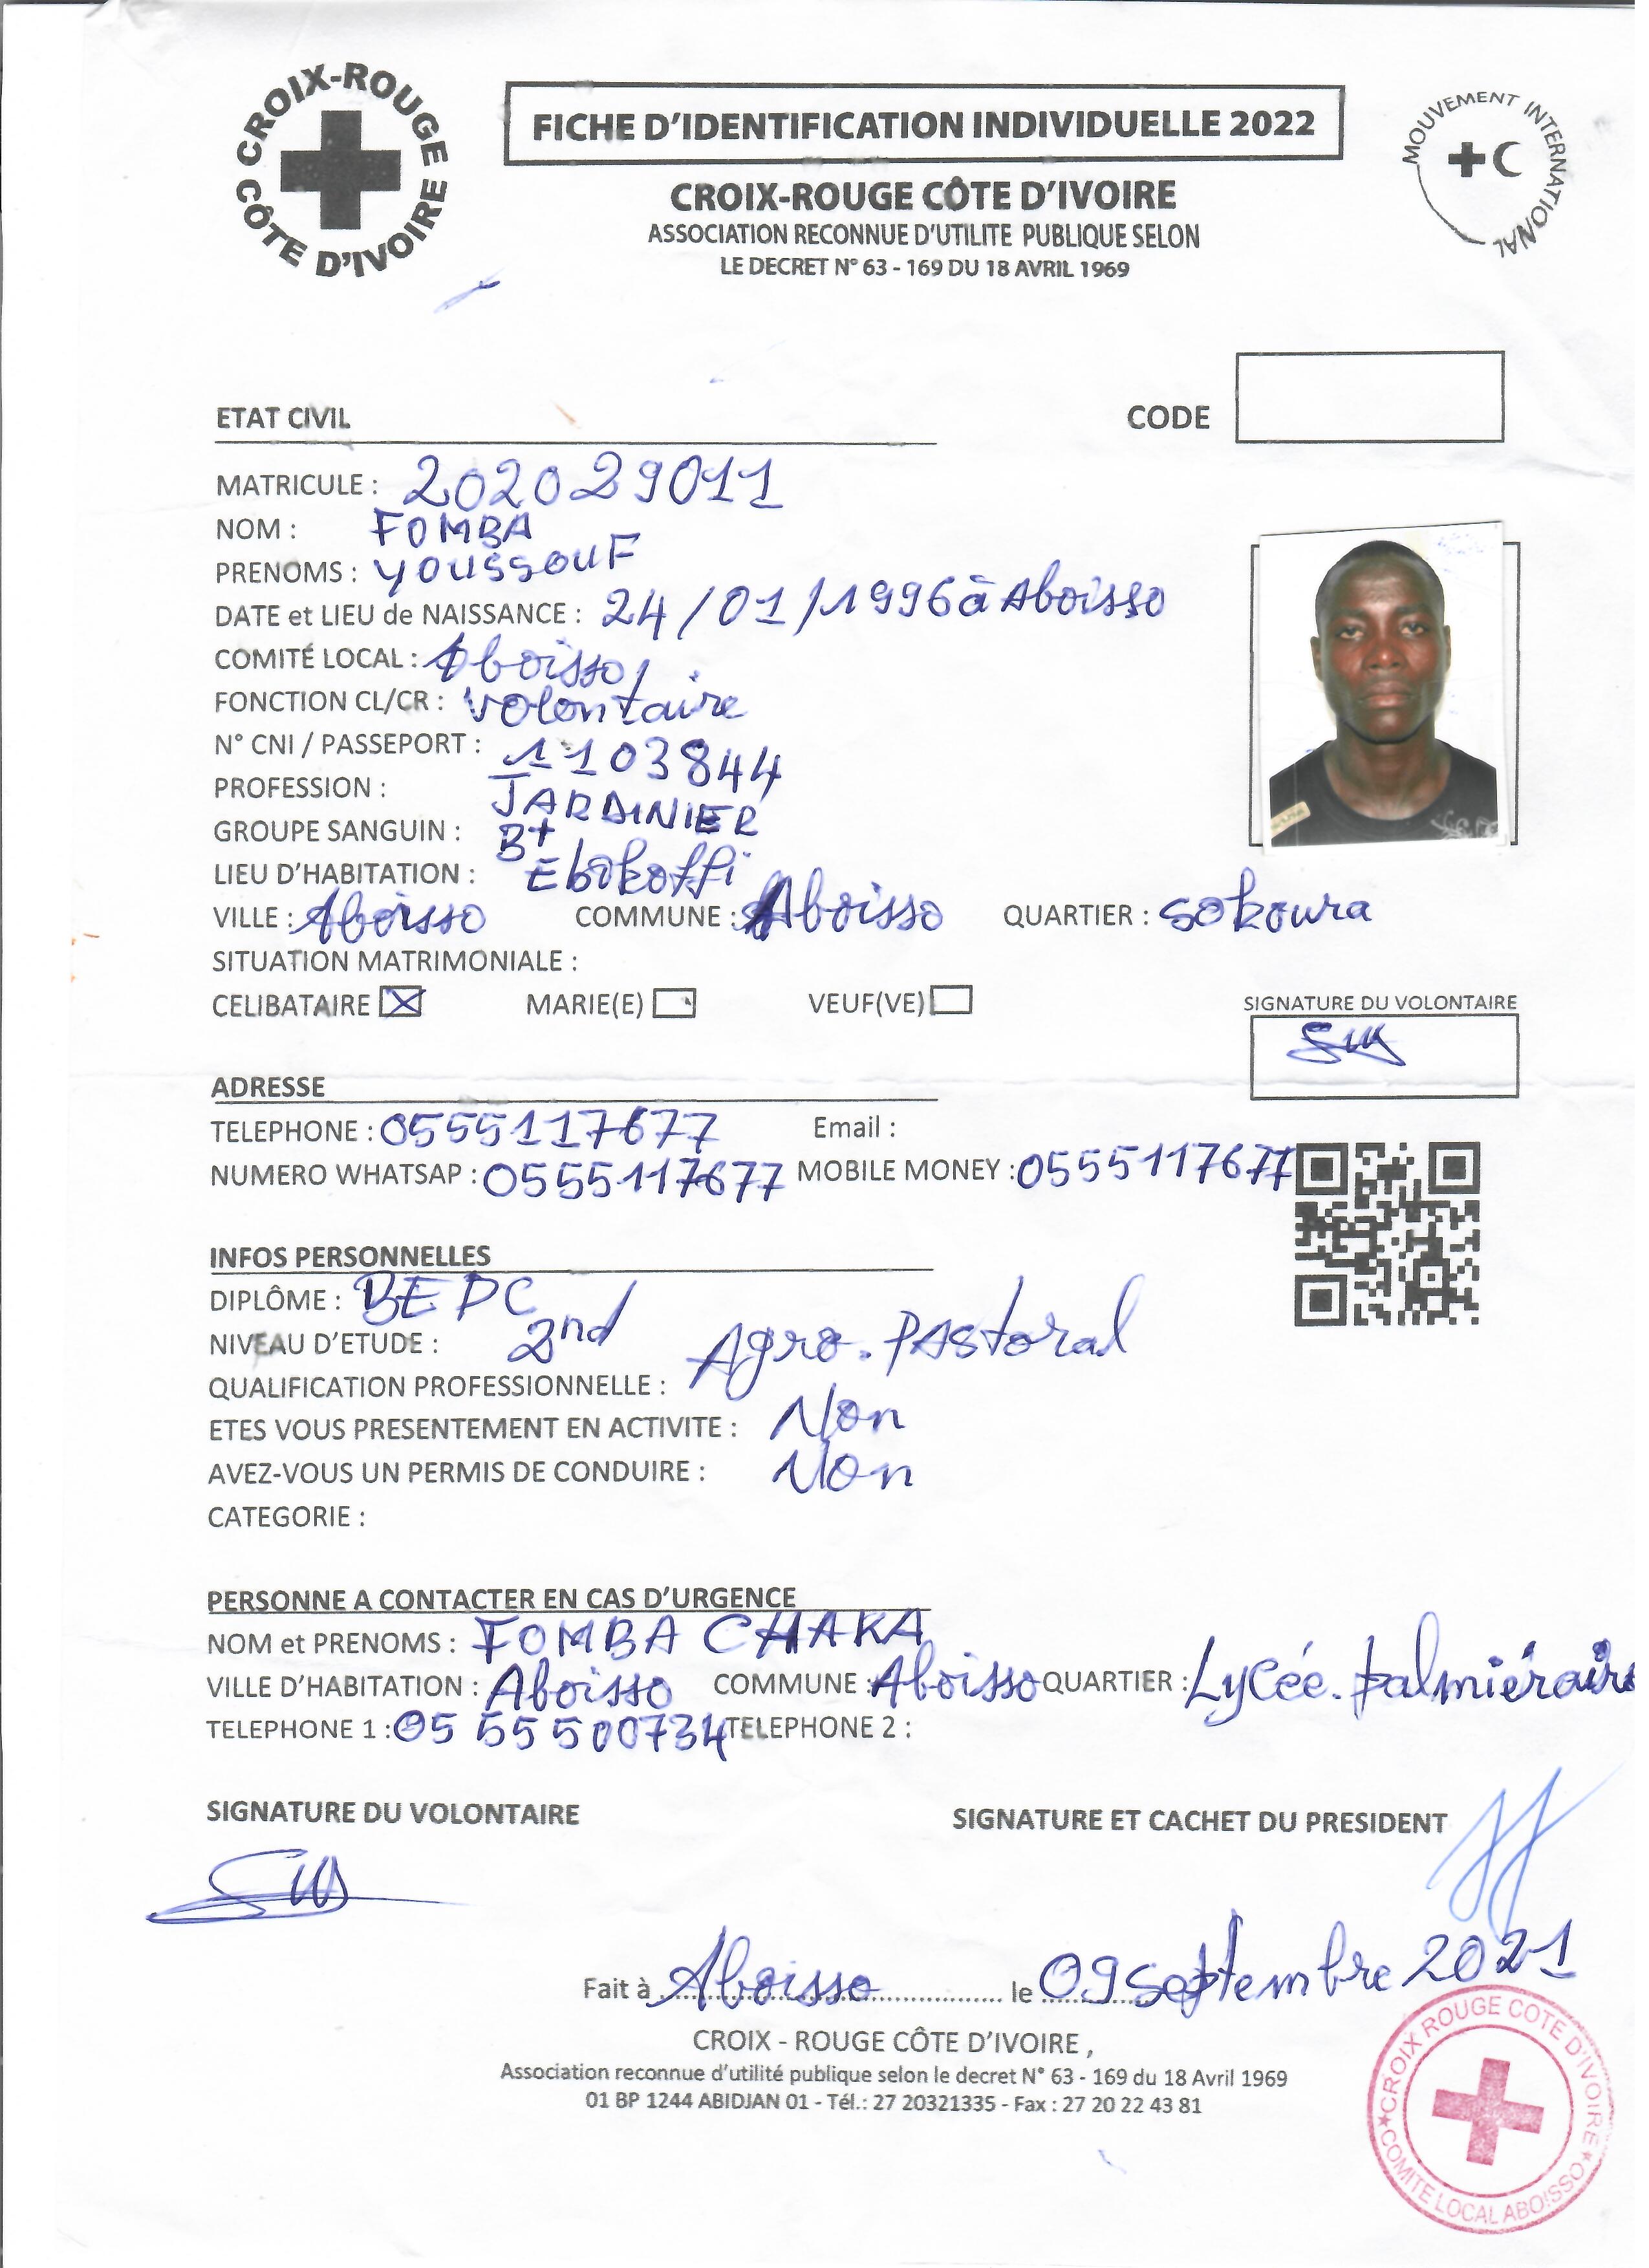 CROIX-ROUGE CÔTE D'IVOIRE
FICHE D'IDENTIFICATION INDIVIDUELLE 2022
MOUVEMENT INTERNATIONAL
CROIX-ROUGE CÔTE D'IVOIRE
ASSOCIATION RECONNUE D'UTILITE PUBLIQUE SELON
LE DECRET N° 63 - 169 DU 18 AVRIL 1969
ETAT CIVIL CODE
MATRICULE : 202029011
NOM : FOMBA
PRENOMS : YOUSSOUF
DATE et LIEU de NAISSANCE : 24/01/1996 à Aboisso
COMITÉ LOCAL : Aboisso
FONCTION CL/CR : Volontaire
N° CNI / PASSEPORT : 1103844
PROFESSION : JARDINIER
GROUPE SANGUIN : B+
LIEU D'HABITATION : Ebikoffi
VILLE : Aboisso COMMUNE : Aboisso QUARTIER : Sokoura
SITUATION MATRIMONIALE :
CELIBATAIRE MARIE(E) VEUF(VE)
SIGNATURE DU VOLONTAIRE
ADRESSE
TELEPHONE : 0555117677 Email :
NUMERO WHATSAP : 0555117677 MOBILE MONEY : 0555117677
INFOS PERSONNELLES
DIPLÔME : BEPC
NIVEAU D'ETUDE : 2nd
QUALIFICATION PROFESSIONNELLE : Agro-PAstoral
ETES VOUS PRESENTEMENT EN ACTIVITE : Non
AVEZ-VOUS UN PERMIS DE CONDUIRE : Non
CATEGORIE :
PERSONNE A CONTACTER EN CAS D'URGENCE
NOM et PRENOMS : FOMBA CHAKA
VILLE D'HABITATION : Aboisso COMMUNE : Aboisso QUARTIER : Lycée. palmiéraire
TELEPHONE 1 : 05 55 500734 TELEPHONE 2 :
SIGNATURE DU VOLONTAIRE SIGNATURE ET CACHET DU PRESIDENT
Fait à Aboisso le 09 Septembre 2021
CROIX - ROUGE CÔTE D'IVOIRE ,
Association reconnue d'utilité publique selon le decret N° 63 - 169 du 18 Avril 1969
01 BP 1244 ABIDJAN 01 - Tél.: 27 20321335 - Fax : 27 20 22 43 81
CROIX ROUGE COTE D'IVOIRE
COMITE LOCAL ABOISSO